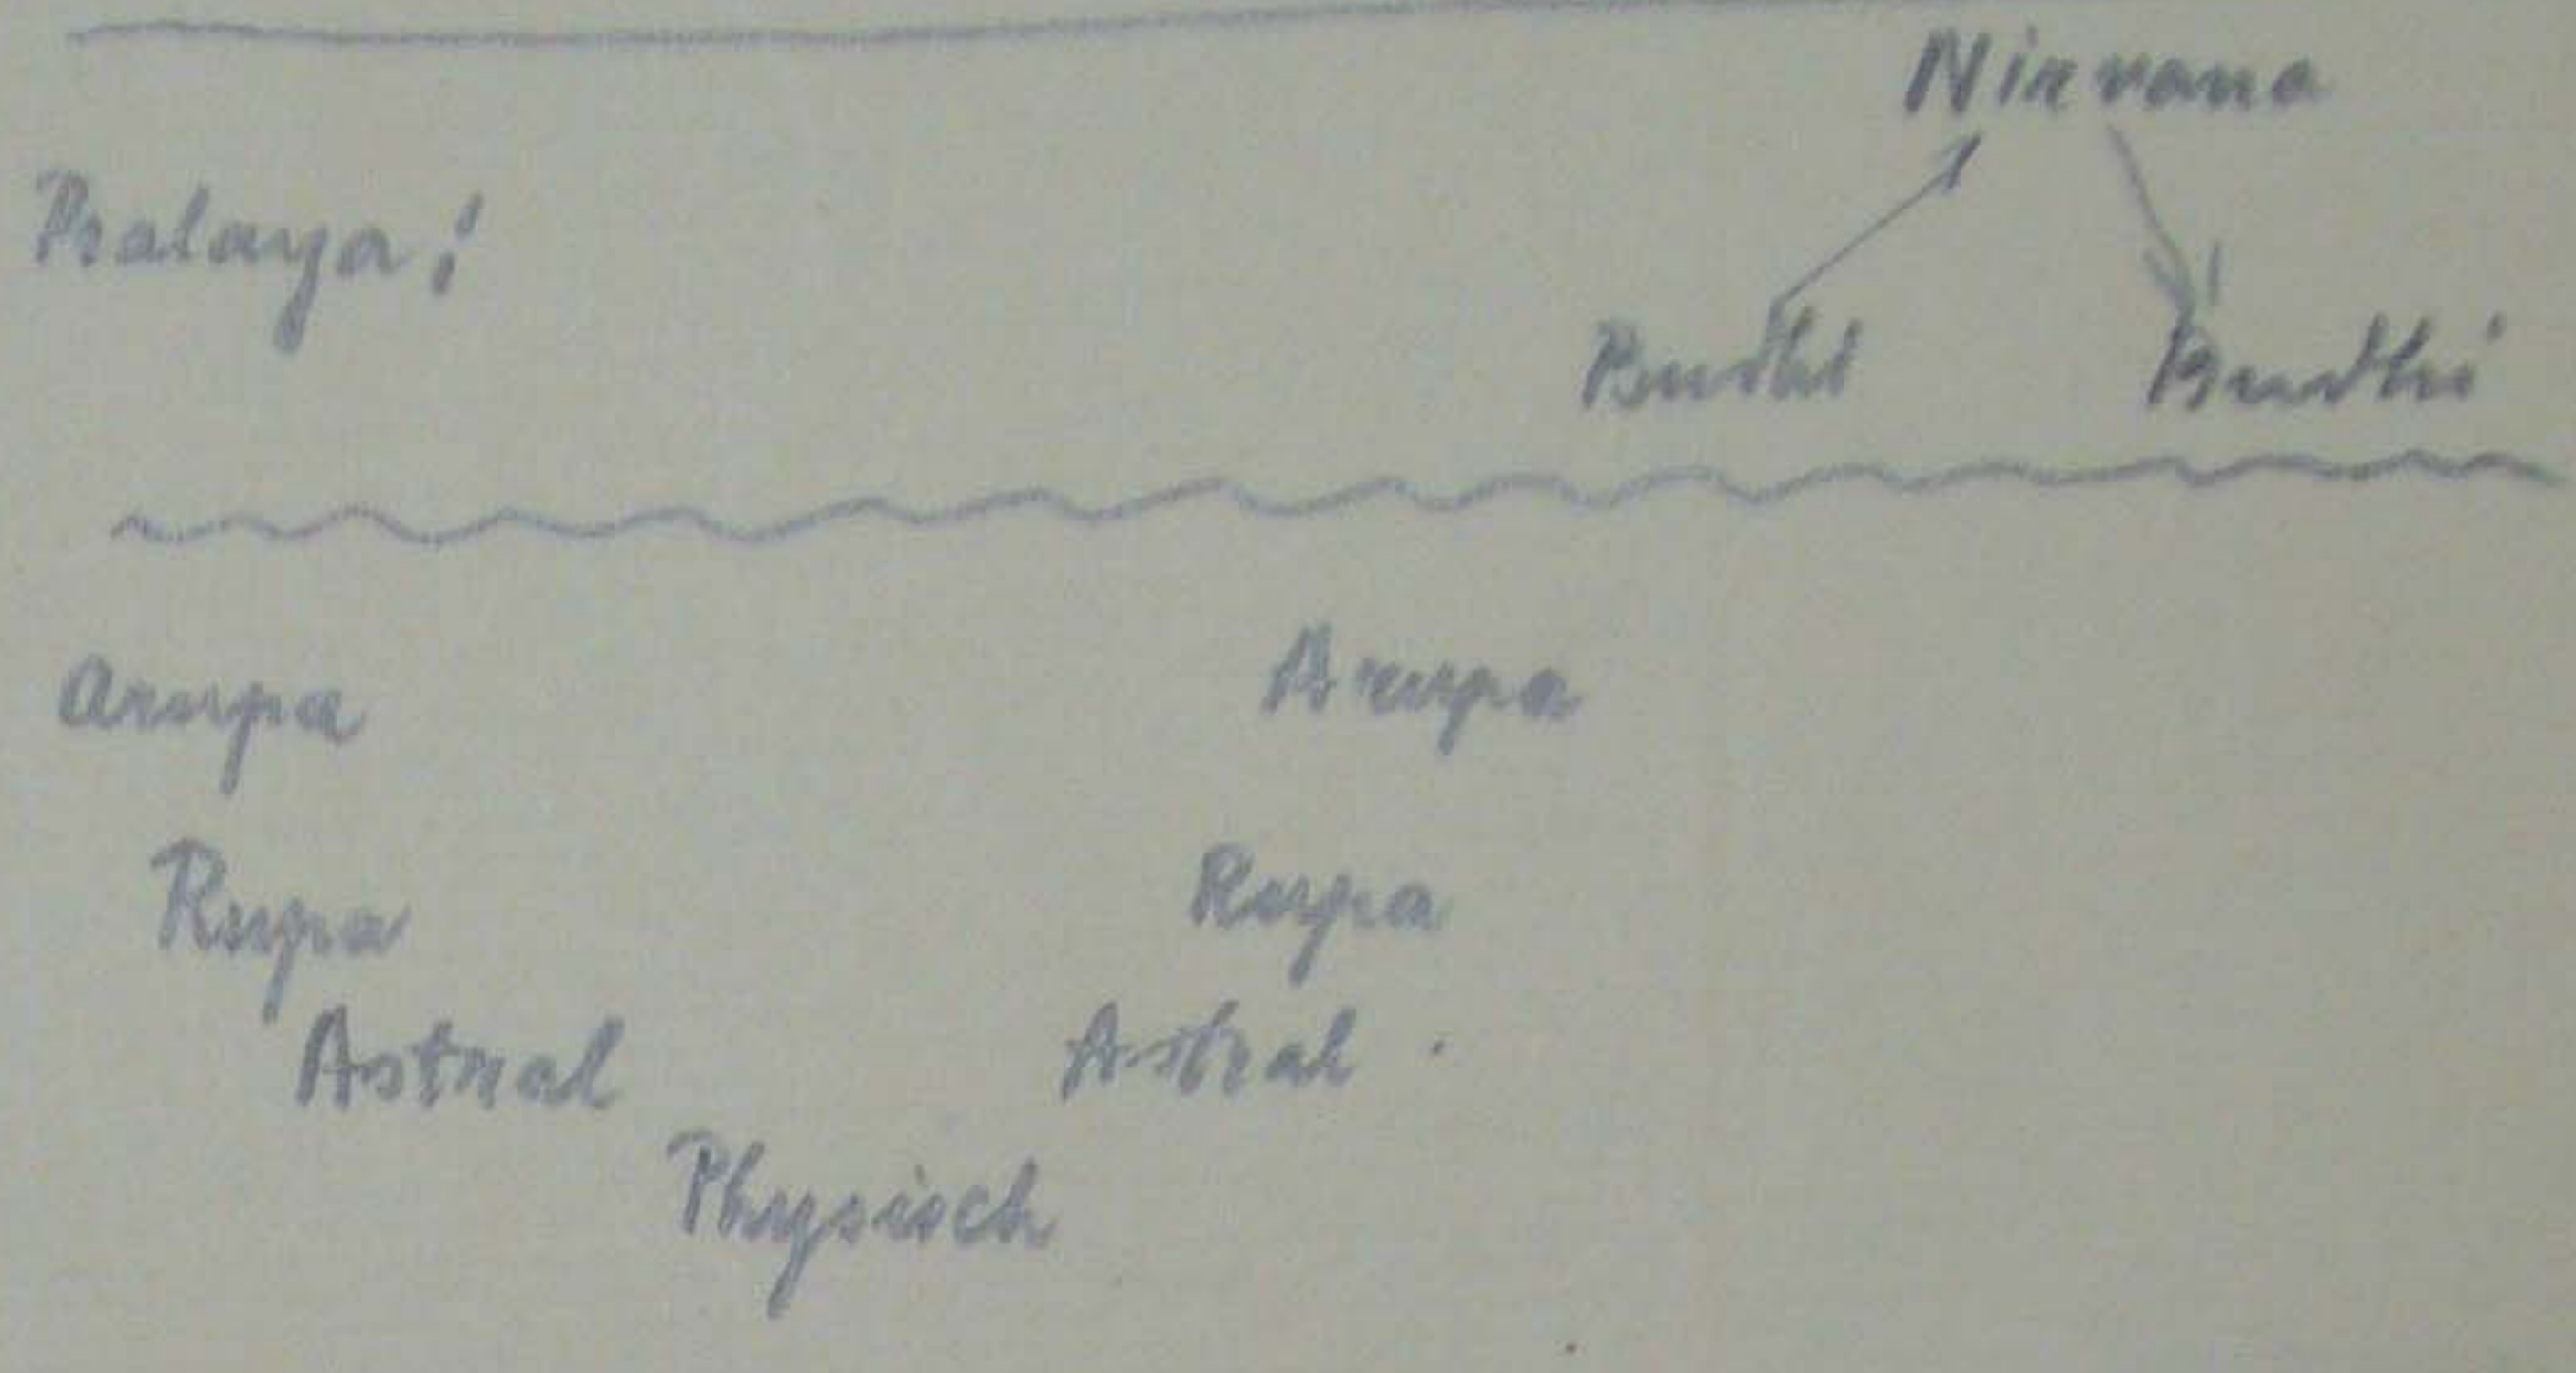 Nirvana
Pralaya:
Budhi Budhi
Arupa Arupa
Rupa Rupa
Astral Astral
Physisch